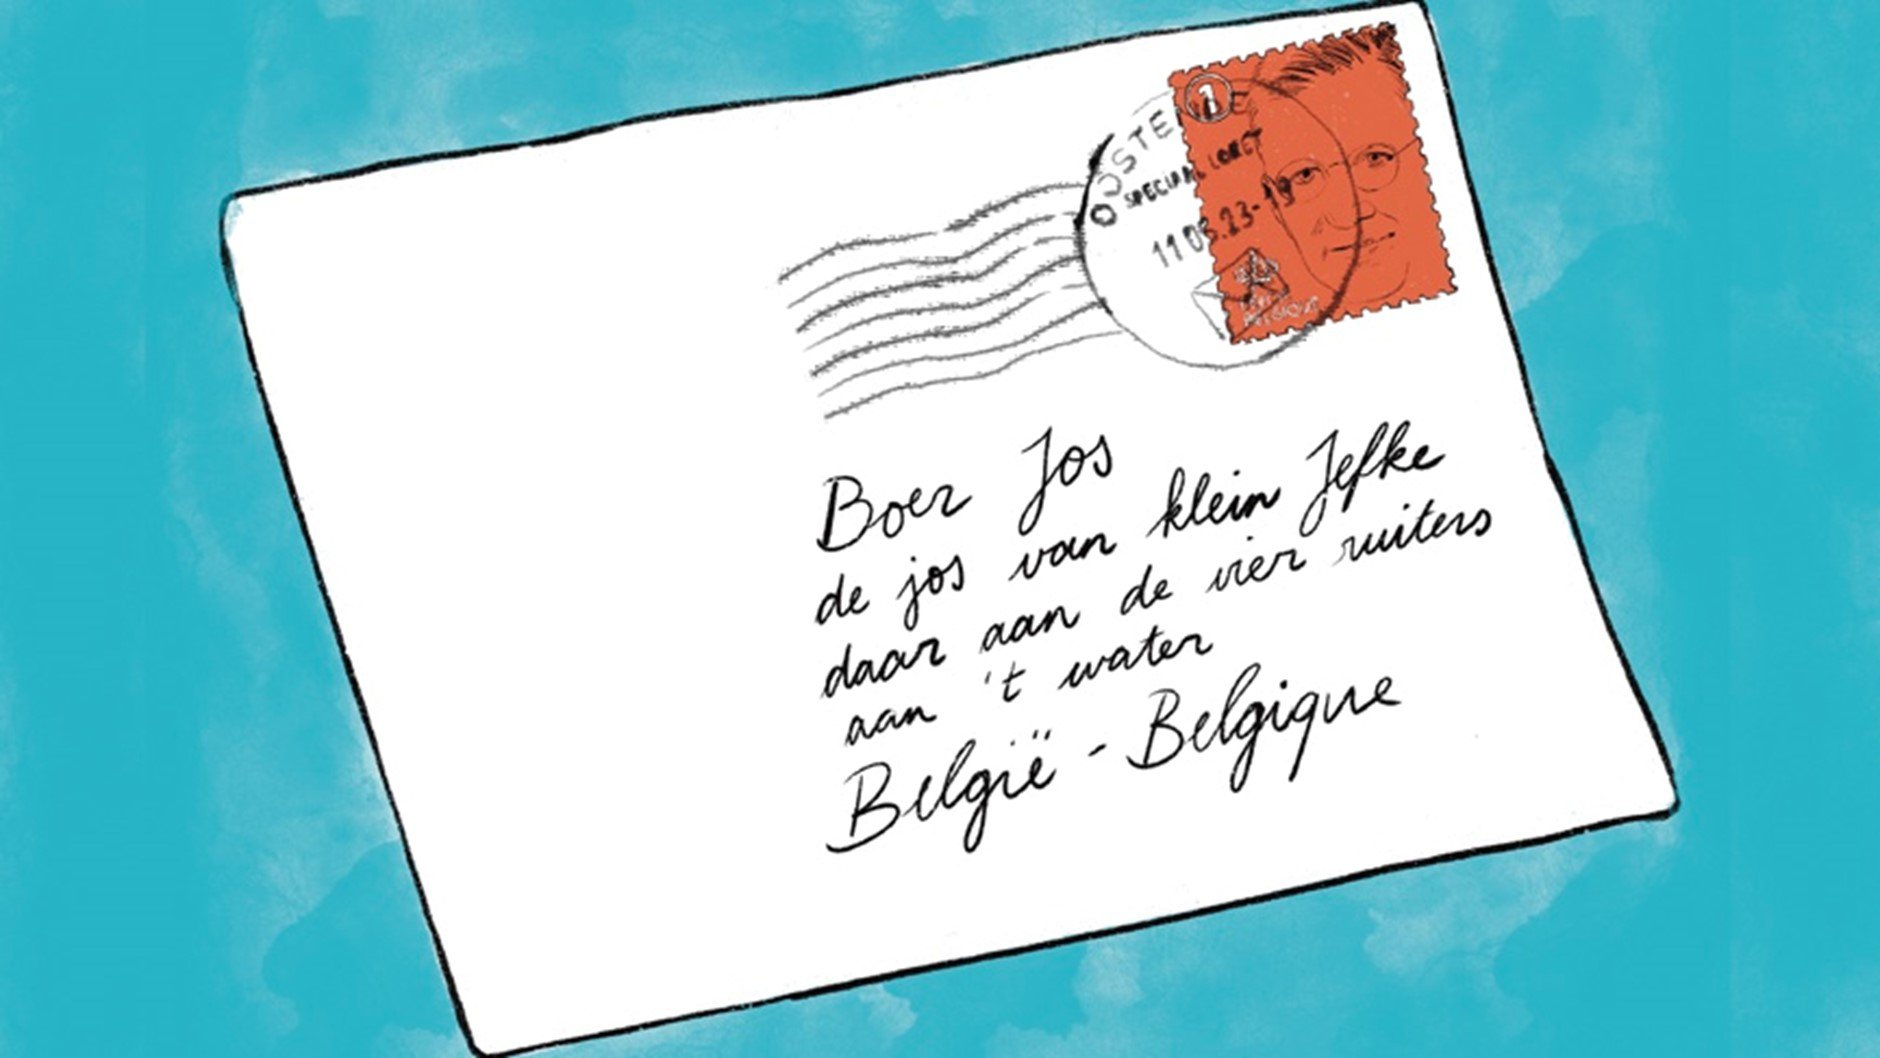 1
OOSTENDE
SPECIAAL LORET
11 06.23-19
BELGIQUE
Boer Jos
de jos van klein Jefke
daar aan de vier ruiters
aan 't water
België - Belgique